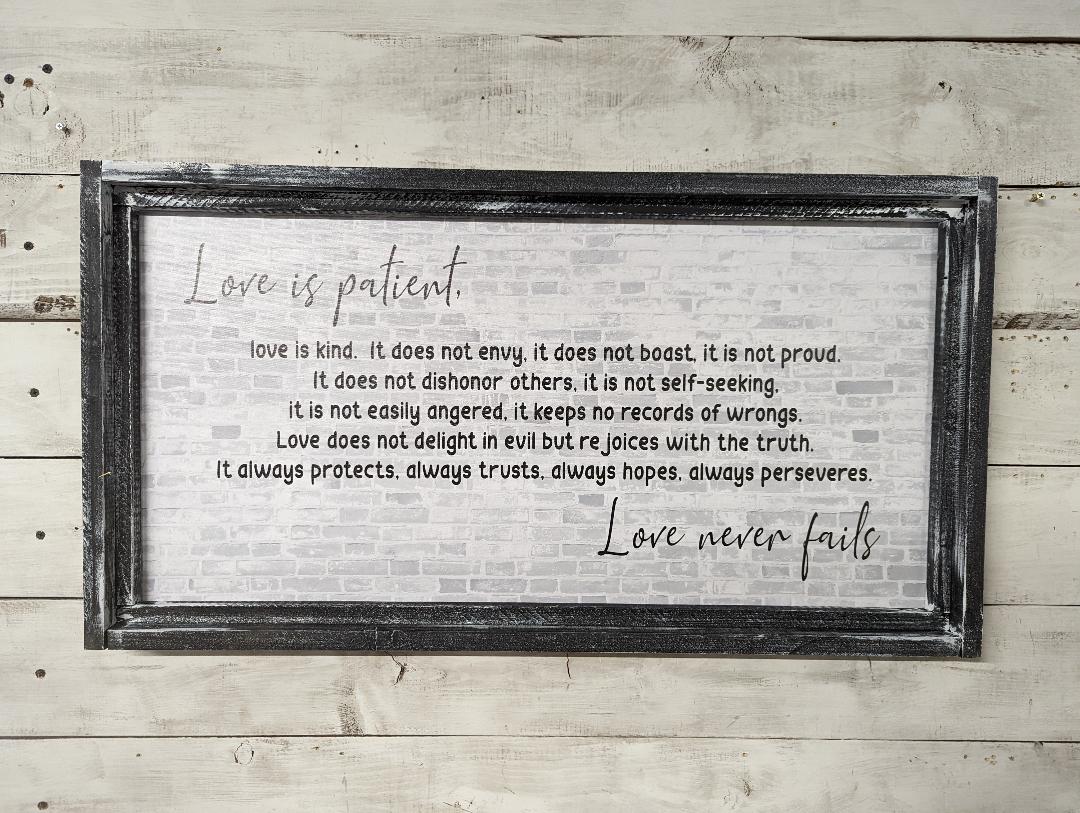 Love is patient,
love is kind. It does not envy, it does not boast, it is not proud.
It does not dishonor others, it is not self-seeking,
it is not easily angered, it keeps no records of wrongs.
Love does not delight in evil but rejoices with the truth.
It always protects, always trusts, always hopes, always perseveres.
Love never fails